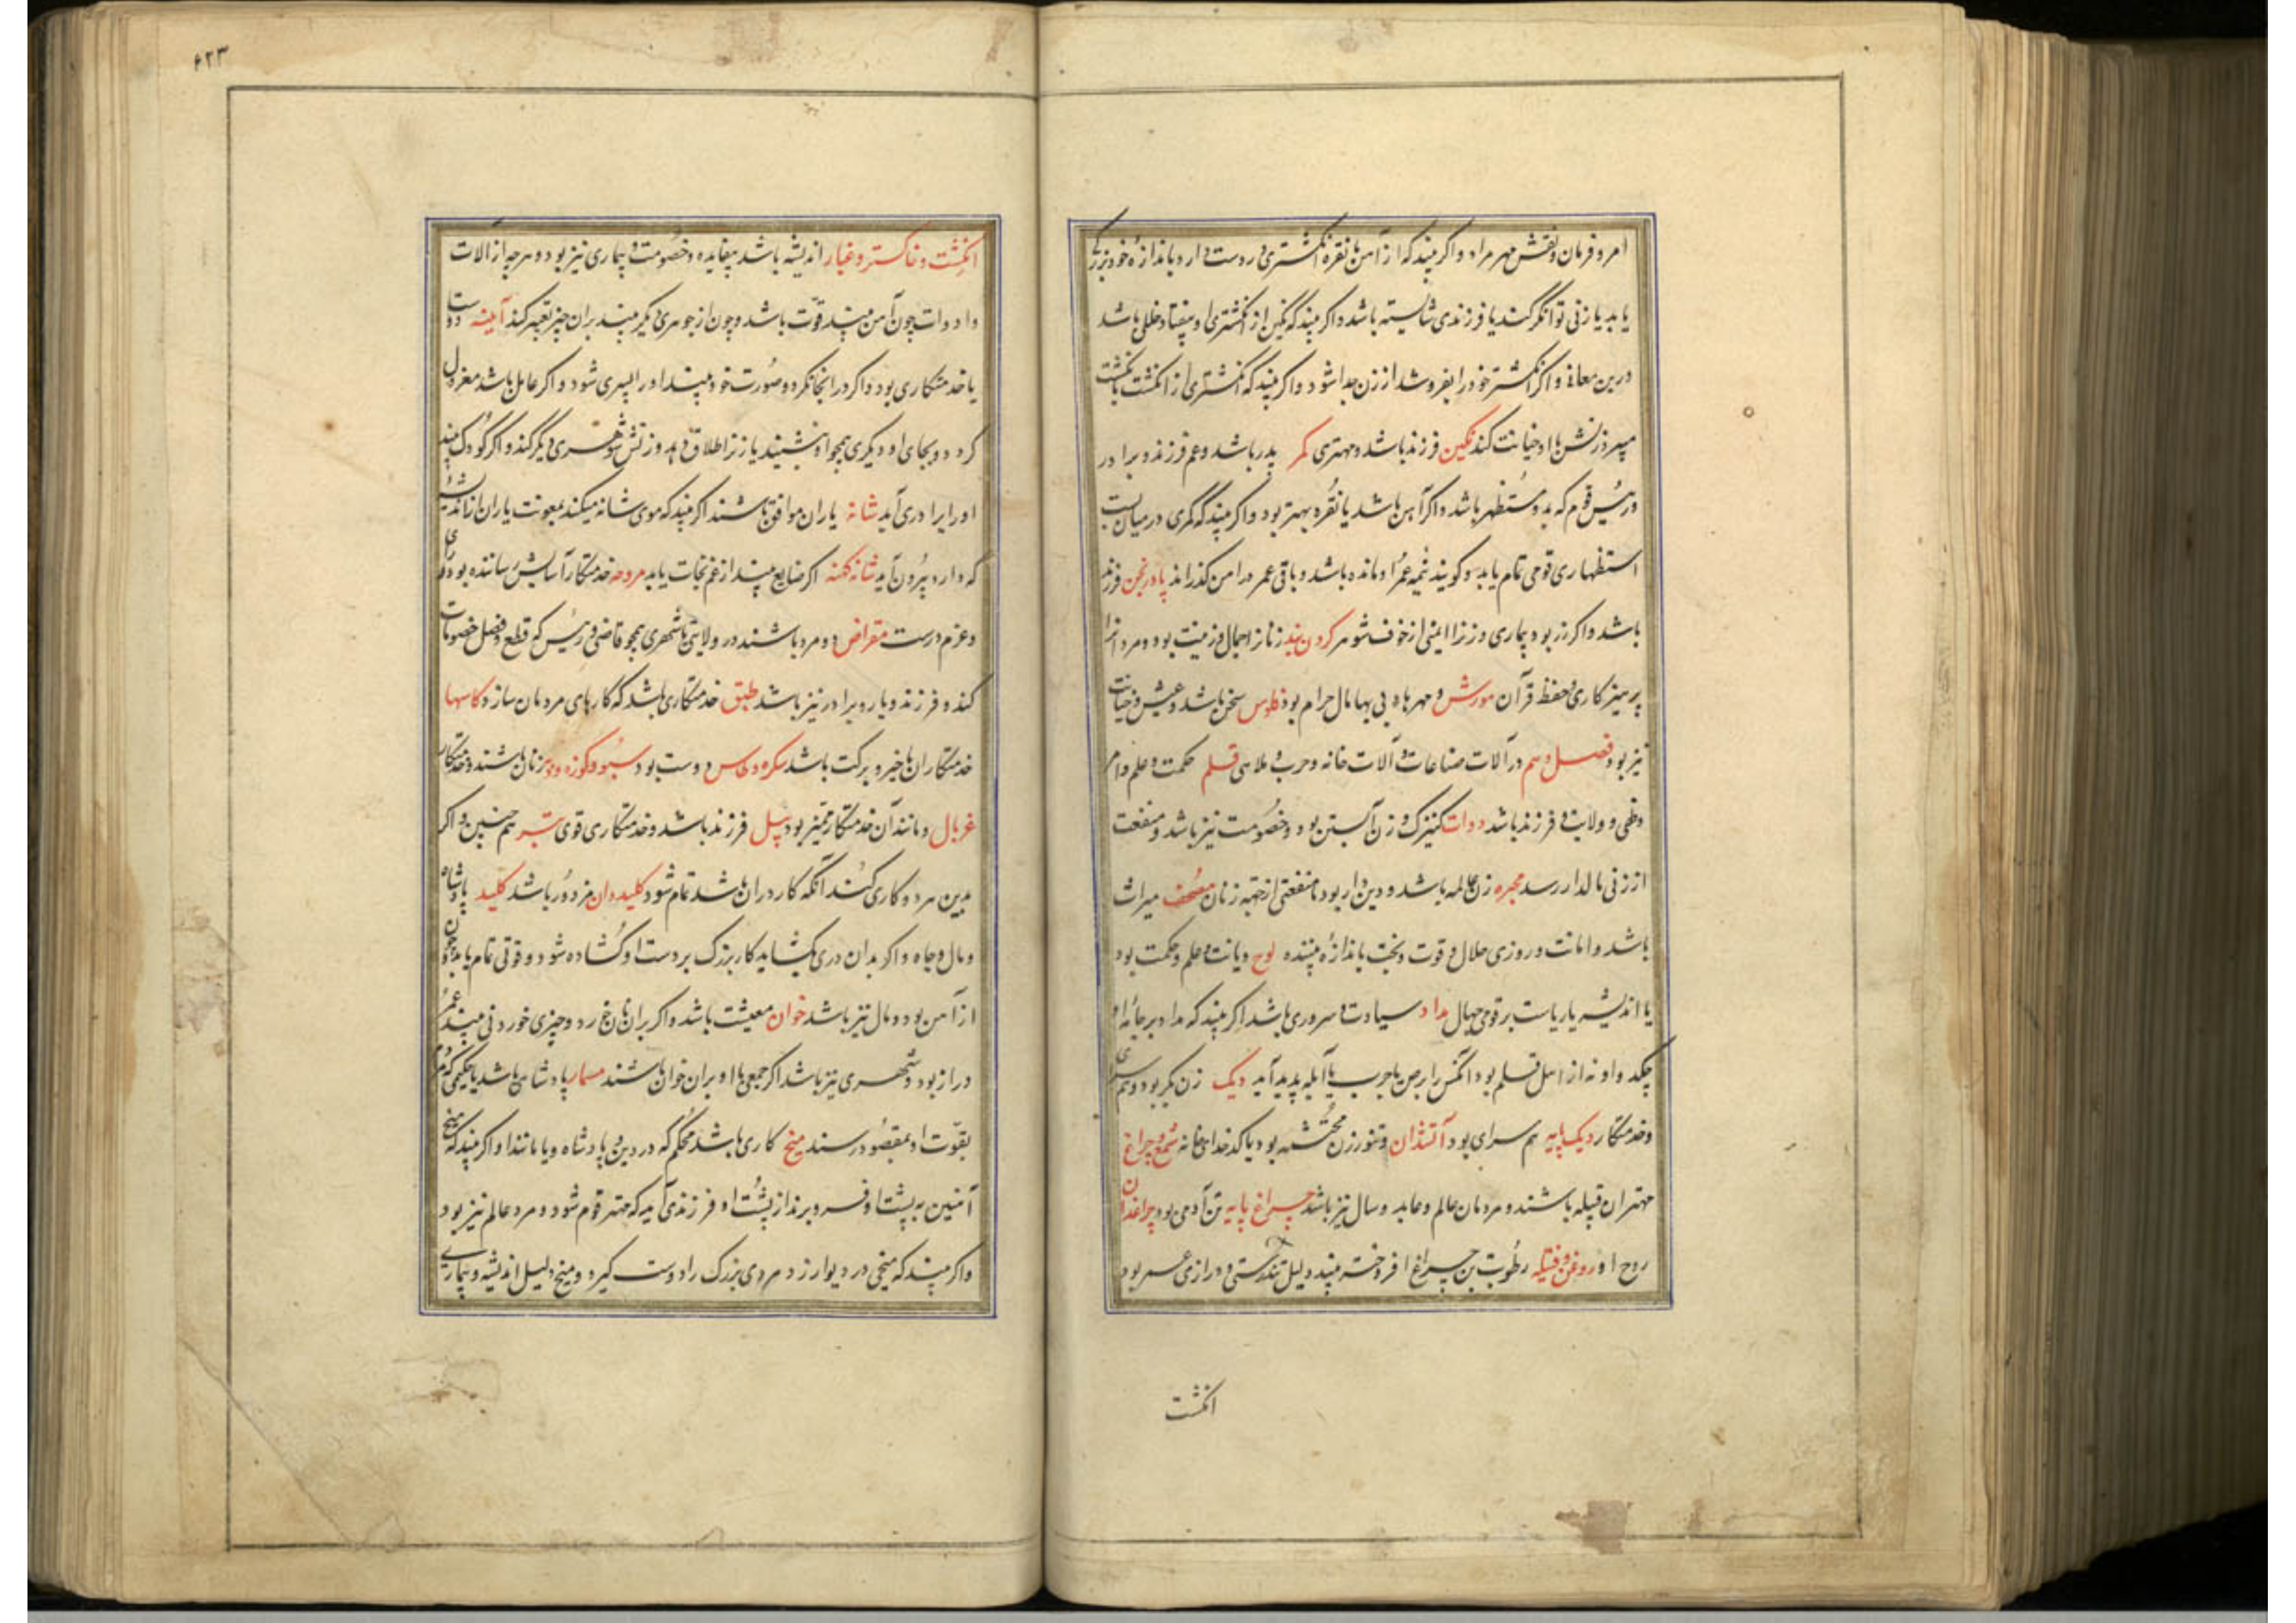 امر و فرمان و نقش مهر مراد و اگر بیند که از آهن یا نقره انگشتری در دست دارد باندازهٔ خود بزرگی
یابد یا زنی توانگر کند یا فرزندی شایسته باشد و اگر بیند که نگین از انگشتری او بیفتاد خللی باشد
درین معانی و اگر انگشتر خود را بفروشد از زن جدا شود و اگر بیند که انگشتری از انگشت بانگشت
میبرد زنش با او خیانت کند نگین فرزند باشد و مهتری کمر پدر باشد و عم و فرزند و برادر
و رئیس قوم که بدو مستظهر باشد و اگر آهن باشد یا نقره بهتر بود و اگر بیند که کمری در میان بست
استظهاری قومی تمام یابد و گویند نیمه عمر او مانده باشد و باقی عمر در امن گذراند پاورنجن فرزند
باشد و اگر زر بود بیماری و زن را ایمنی از خوف شوهر گردن بند زنان را جمال و زینت بود و مرد را
پرهیزکاری و حفظ قرآن مورش و مهرهای بی بها مال حرام بود فلوس سخن باشد و عیش و خیانت
نیز بود فصل دهم در آلات صناعات و آلات خانه و حرب و ملاهی قلم حکمت و علم و ام
و ظی و ولایت و فرزند باشد دوات کنیزک و زن آبستن بود و خصومت نیز باشد و منفعت
از زنی مالدار رسد محبره زن عالمه باشد و دین دار بود یا منفعتی از جهة زنان مصحف میراث
باشد و امانت و روزی حلال و قوت و بخت باندازهٔ بیننده لوح دیانت و علم و حکمت بود
یا اندیشه یا ریاست بر قومی جهال مداد سیادت و سروری باشد اگر بیند که مداد بر جامهٔ او
چکد و او نه از اهل قلم بود آنکس را برص یا جرب یا آبله پدید آید دیک زن بکر بود و هم سرای
و خدمتکار دیک پایه هم سرای بود آتشدان و تنور زن محتشمه بود یا کدخدای خانه شمع و چراغ
مهتران قبیله باشند و مردمان عالم و عابد و سال نیز باشد چراغ پایه تن آدمی بود چراغدان
روح او روغن و فتیله رطوبت تن چراغ افروخته بیند دلیل تندرستی و درازی عمر بود
انگشت
۶۲۳
انگشت و خاکستر و غبار اندیشه باشد بیفایده و خصومت و بیماری نیز بود و هرچه از آلات
و ادوات چون آهن بیند قوت باشد و چون از جوهری دیگر بیند بران چیز تعبیر کند آینه دوست
یا خدمتکاری بود و اگر در آنجا نگرد و صورت خود بیند او را پسری شود و اگر عامل باشد معزول
گردد و بجای او دیگری همچو او بنشیند یا زن را طلاق دهد و زنش شوهری دیگر کند و اگر کودک بیند
او را برادری آید شانه یاران موافق باشند اگر بیند که موی شانه میکند بمعونت یاران از اندیشهٔ
که دارد بیرون آید شانه کهنه اگر ضایع بیند از غم نجات یابد مروحه خدمتکار آسایش رساننده بود و رای
و عزم درست مقراض دو مرد باشند در ولایتی یا شهری همچو قاضی و رئیس که قطع و فصل خصومات
کند و فرزند و یار و برادر نیز باشد طبق خدمتکاری باشد که کارهای مردمان سازد کاسها
خدمتکاران با خیر و برکت باشد سکره و طاس دوست بود سبو و کوزه زنان باشند و خدمتکار
غربال و مانند آن خدمتکار ممیز بود بیل فرزند باشد و خدمتکاری قوی تبر هم چنین و اگر
بدین هر دو کاری کنند آنکه کار دران باشد تمام شود کلیددان مزدور باشد کلید پادشاه
و مال و جاه و اگر بدان دری بگشاید کار بزرگ بر دست او گشاده شود و قوتی تمام یابد چون
از آهن بود و مال نیز باشد خوان معیشت باشد و اگر بران نان خورد و چیزی خوردنی بیند عمر
دراز بود و شهری نیز باشد اگر جمعی با او بران خوان باشند مسمار پادشاهی باشد یا حکیمی که مردم
بقوت او بمقصود رسند میخ کاری باشد محکم که در دین و پادشاه و یا مانند او اگر بیند که میخ
آهنین به پشت او فرو برند از پشت او فرزندی آید که مهتر قوم شود و مرد عالم نیز بود
و اگر بیند که میخی در دیوار زد مردی بزرگ را دوست گیرد و میخ دلیل اندیشه و بیماری